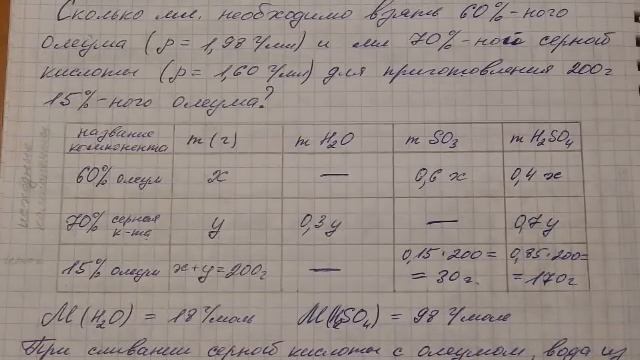 Сколько мл. необходимо взять 60%-ного
олеума (ρ = 1,98 г/мл) и мл 70%-ной серной
кислоты (ρ = 1,60 г/мл) для приготовления 200г
15%-ного олеума?
название компонента m (г) m H₂O m SO₃ m H₂SO₄
60% олеум x — 0,6 x 0,4 x
70% серная к-та y 0,3 y — 0,7 y
15% олеум x+y=200г — 0,15·200= =30г. 0,85·200= =170г
M(H₂O) = 18 г/моль M(H₂SO₄) = 98 г/моль
При сливании серной кислоты с олеумом, вода из